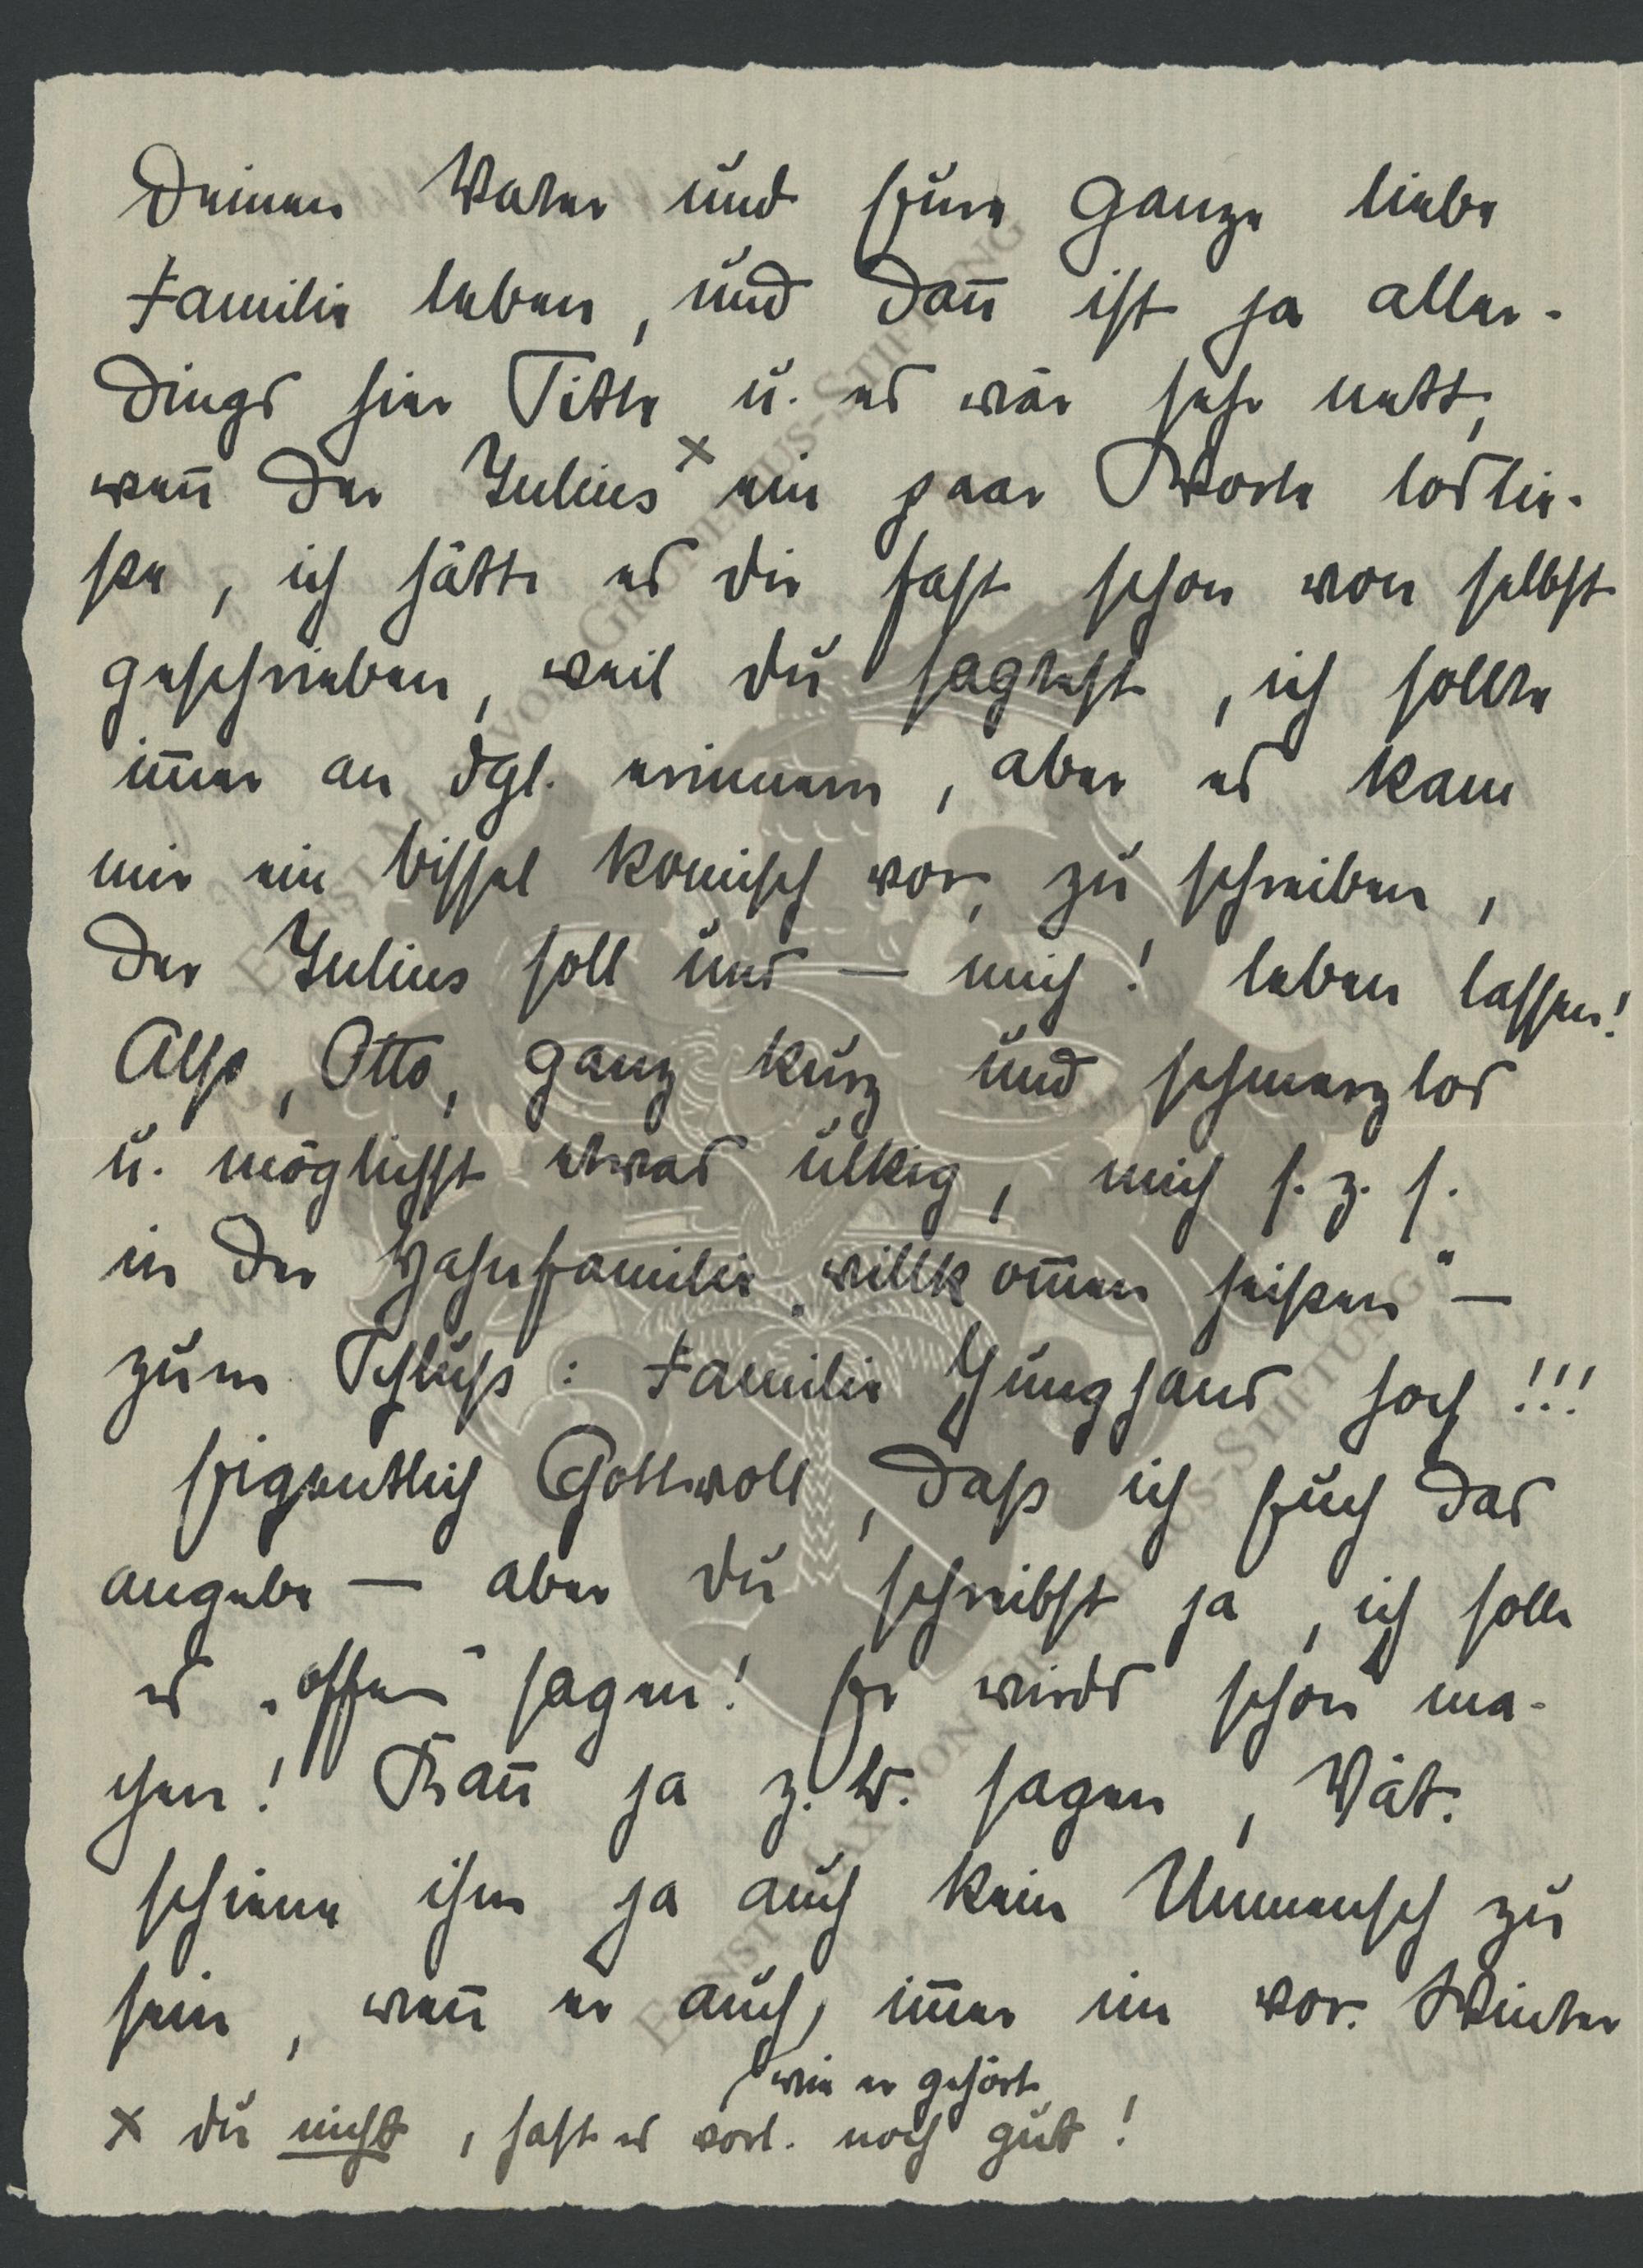 Deinen Vater und Eure ganze liebe
Familie leben, und dañ ist ja aller-
dings hier Sitte u. es wär sehr nett,
weñ der Julius x ein paar Worte loslie-
ße, ich hätte es dir fast schon von selbst
geschrieben, weil du sagtest, ich sollte
im̄er an dgl. erinnern, aber es kam
mir ein bissel komisch vor, zu schreiben,
der Julius soll uns — mich! leben lassen!
Also, Otto, ganz kurz und schmerzlos
u. möglichst etwas ulkig, mich s. z. s.
in der Hahnfamilie „willkom̄en heißen" —
zum Schluß: Familie Junghans hoch!!!
Eigentlich Gottvoll, daß ich Euch das
angebe — aber du schreibst ja, ich solle
es „offen" sagen! Er wirds schon ma-
chen! Kañ ja z. B. sagen, Vat.
schiene ihm ja auch kein Unmensch zu
sein, weñ er auch, im̄er im vor. Winter
wie er gehört
x du nicht, hast es vorl. noch gut!
ERNST MAX VON GRUNELIUS-STIFTUNG
ERNST MAX VON GRUNELIUS-STIFTUNG